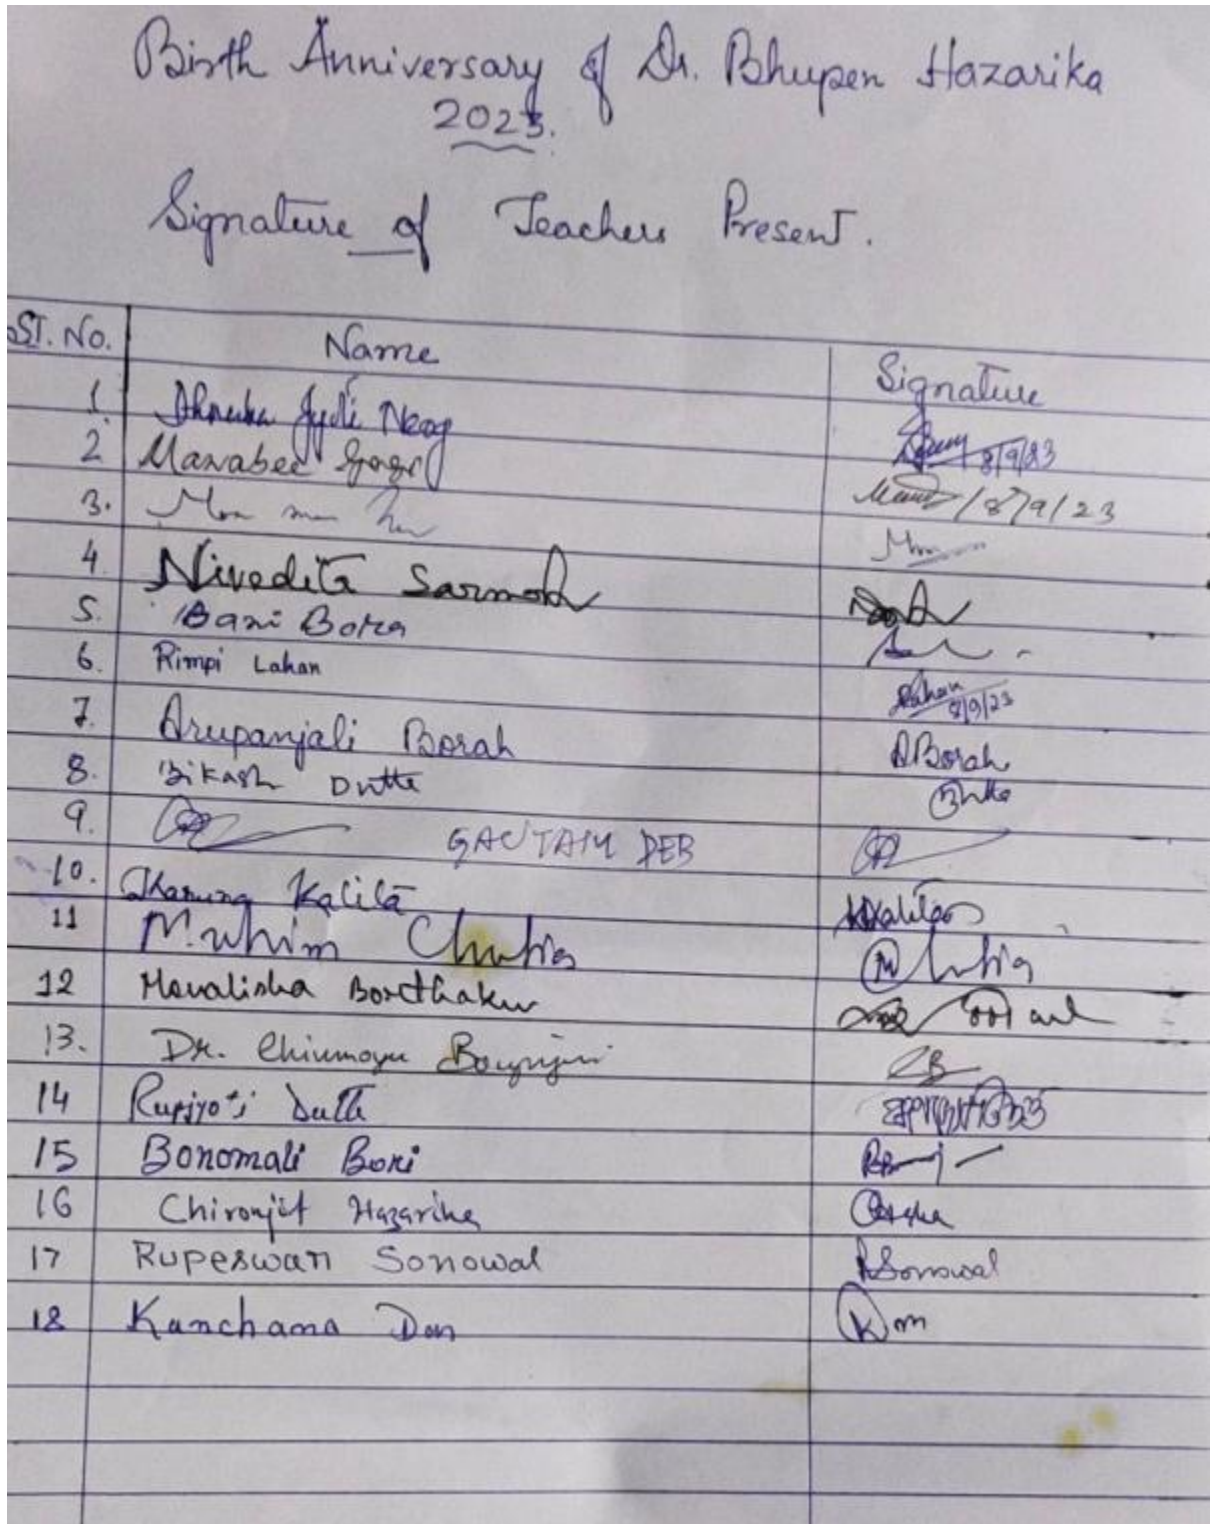 Birth Anniversary of Dr. Bhupen Hazarika
2023.
Signature of Teachers Present.
Sl. No. Name Signature
1. Jyoti Neog 8/9/23
2 Manabee Gogoi 8/9/23
3.
4. Nivedita Sarmah
5. Bani Bora
6. Rimpi Lahan Lahan 8/9/23
7. Arupanjali Borah ABorah
8. Bikash Dutta Dutta
9. GAUTAM DEB
10. Karuna Kalita Kalita
11 Chutia Chutia
12 Monalisha Borthakur
13. Dr. Chinmoyee
14 Rupjyoti Dutta
15 Bonomali Bori
16 Chironjit Hazarika
17 Rupeswari Sonowal RSonowal
18 Kanchana